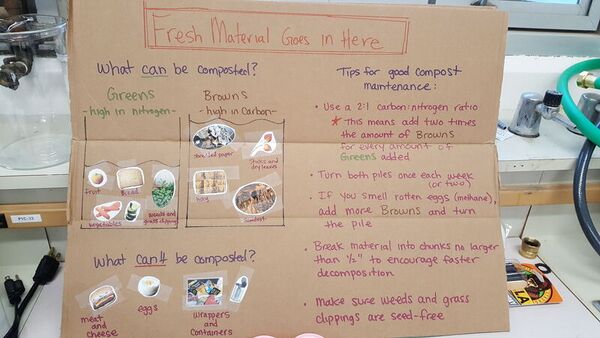 Fresh Material Goes in Here
What can be composted?
Greens
- high in nitrogen -
Browns
- high in Carbon -
shredded paper
sticks and
dry leaves
fruit
bread
hay
vegetables
weeds and
grass clippings
sawdust
What can't be composted?
meat
and
cheese
eggs
wrappers
and
containers
Tips for good compost
maintenance:
• Use a 2:1 carbon:nitrogen ratio
* This means add two times
the amount of Browns
for every amount of
Greens added
• Turn both piles once each week
(or two)
• If you smell rotten eggs (methane),
add more Browns and turn
the pile
• Break material into chunks no larger
than ½" to encourage faster
decomposition
• Make sure weeds and grass
clippings are seed-free
LA